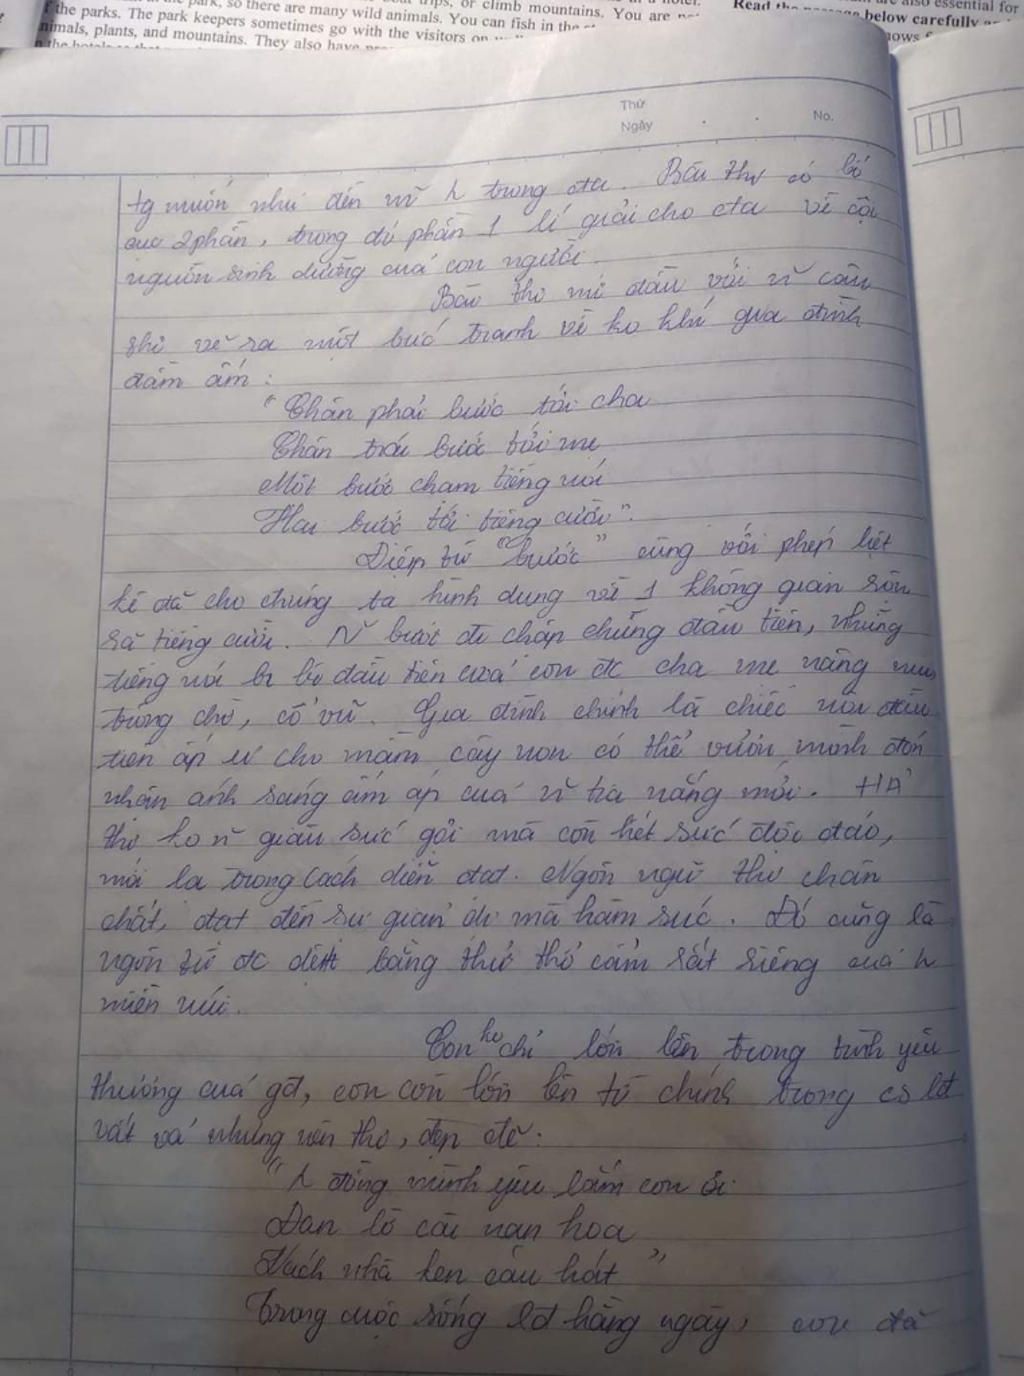 the parks. The park keepers sometimes go with the visitors on
park, so there are many wild animals. You can fish in the
or climb mountains. You are
nimals, plants, and mountains. They also have
Read the passage below carefully
also essential for
Thứ
Ngày
No.
tg muốn như đến vs h trong cta. Bài thơ có bố
cục 2 phần, trong đó phần 1 lí giải cho cta về cội
nguồn sinh dưỡng của con người.
Bài thơ mở đầu với n~ câu
thơ vẽ ra một bức tranh về ko khí gia đình
đầm ấm:
"Chân phải bước tới cha
Chân trái bước tới mẹ
Một bước chạm tiếng nói
Hai bước tới tiếng cười".
Điệp từ "bước" cùng với phép liệt
kê đã cho chúng ta hình dung về 1 không gian rộn
rã tiếng cười. N~ bước đi chập chững đầu tiên, những
tiếng nói bi bô đầu tiên của con đc cha mẹ nâng niu
từng chờ, cổ vũ. Gia đình chính là chiếc nôi đầu
tiên ấp ủ cho mầm cây non có thể vươn mình đón
nhận ánh sáng ấm áp của n~ tia nắng mới. HẢ
thơ ko n~ giàu sức gợi mà còn hết sức độc đáo,
mới lạ trong cách diễn đạt. Ngôn ngữ thơ chân
chất, đạt đến sự giản dị mà hàm súc. Đó cũng là
ngôn từ đc dệtt bằng thứ thổ cẩm rất riêng của h
miền núi.
Con ko chỉ lớn lên trong tình yêu
thương của gđ, con còn lớn lên từ chính trong cs lđ
vất vả nhưng nên thơ, đẹp đẽ:
"h đồng mình yêu lắm con ơi
Đan lờ cài nan hoa
Vách nhà ken câu hát"
Trong cuộc sống lđ hằng ngày, con đã